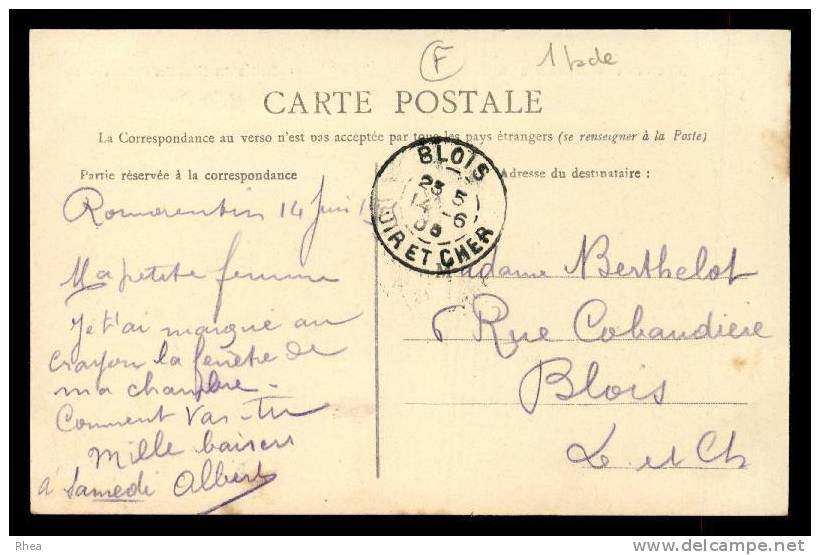 F
CARTE POSTALE
La Correspondance au verso n'est pas acceptée par tous les pays étrangers (se renseigner à la Poste)
Partie réservée à la correspondance
Adresse du destinataire :
BLOIS
14 -6
LOIR ET CHER
Romorentin 14 Juin
Ma petite femme
Je t'ai marqué au
crayon la fenêtre de
ma chambre -
Comment vas-tu
Mille baisers
à Samedi Albert
Madame Berthelot
6 Rue Cobaudiere
Blois
L et Ch
Rhea
www.delcampe.net